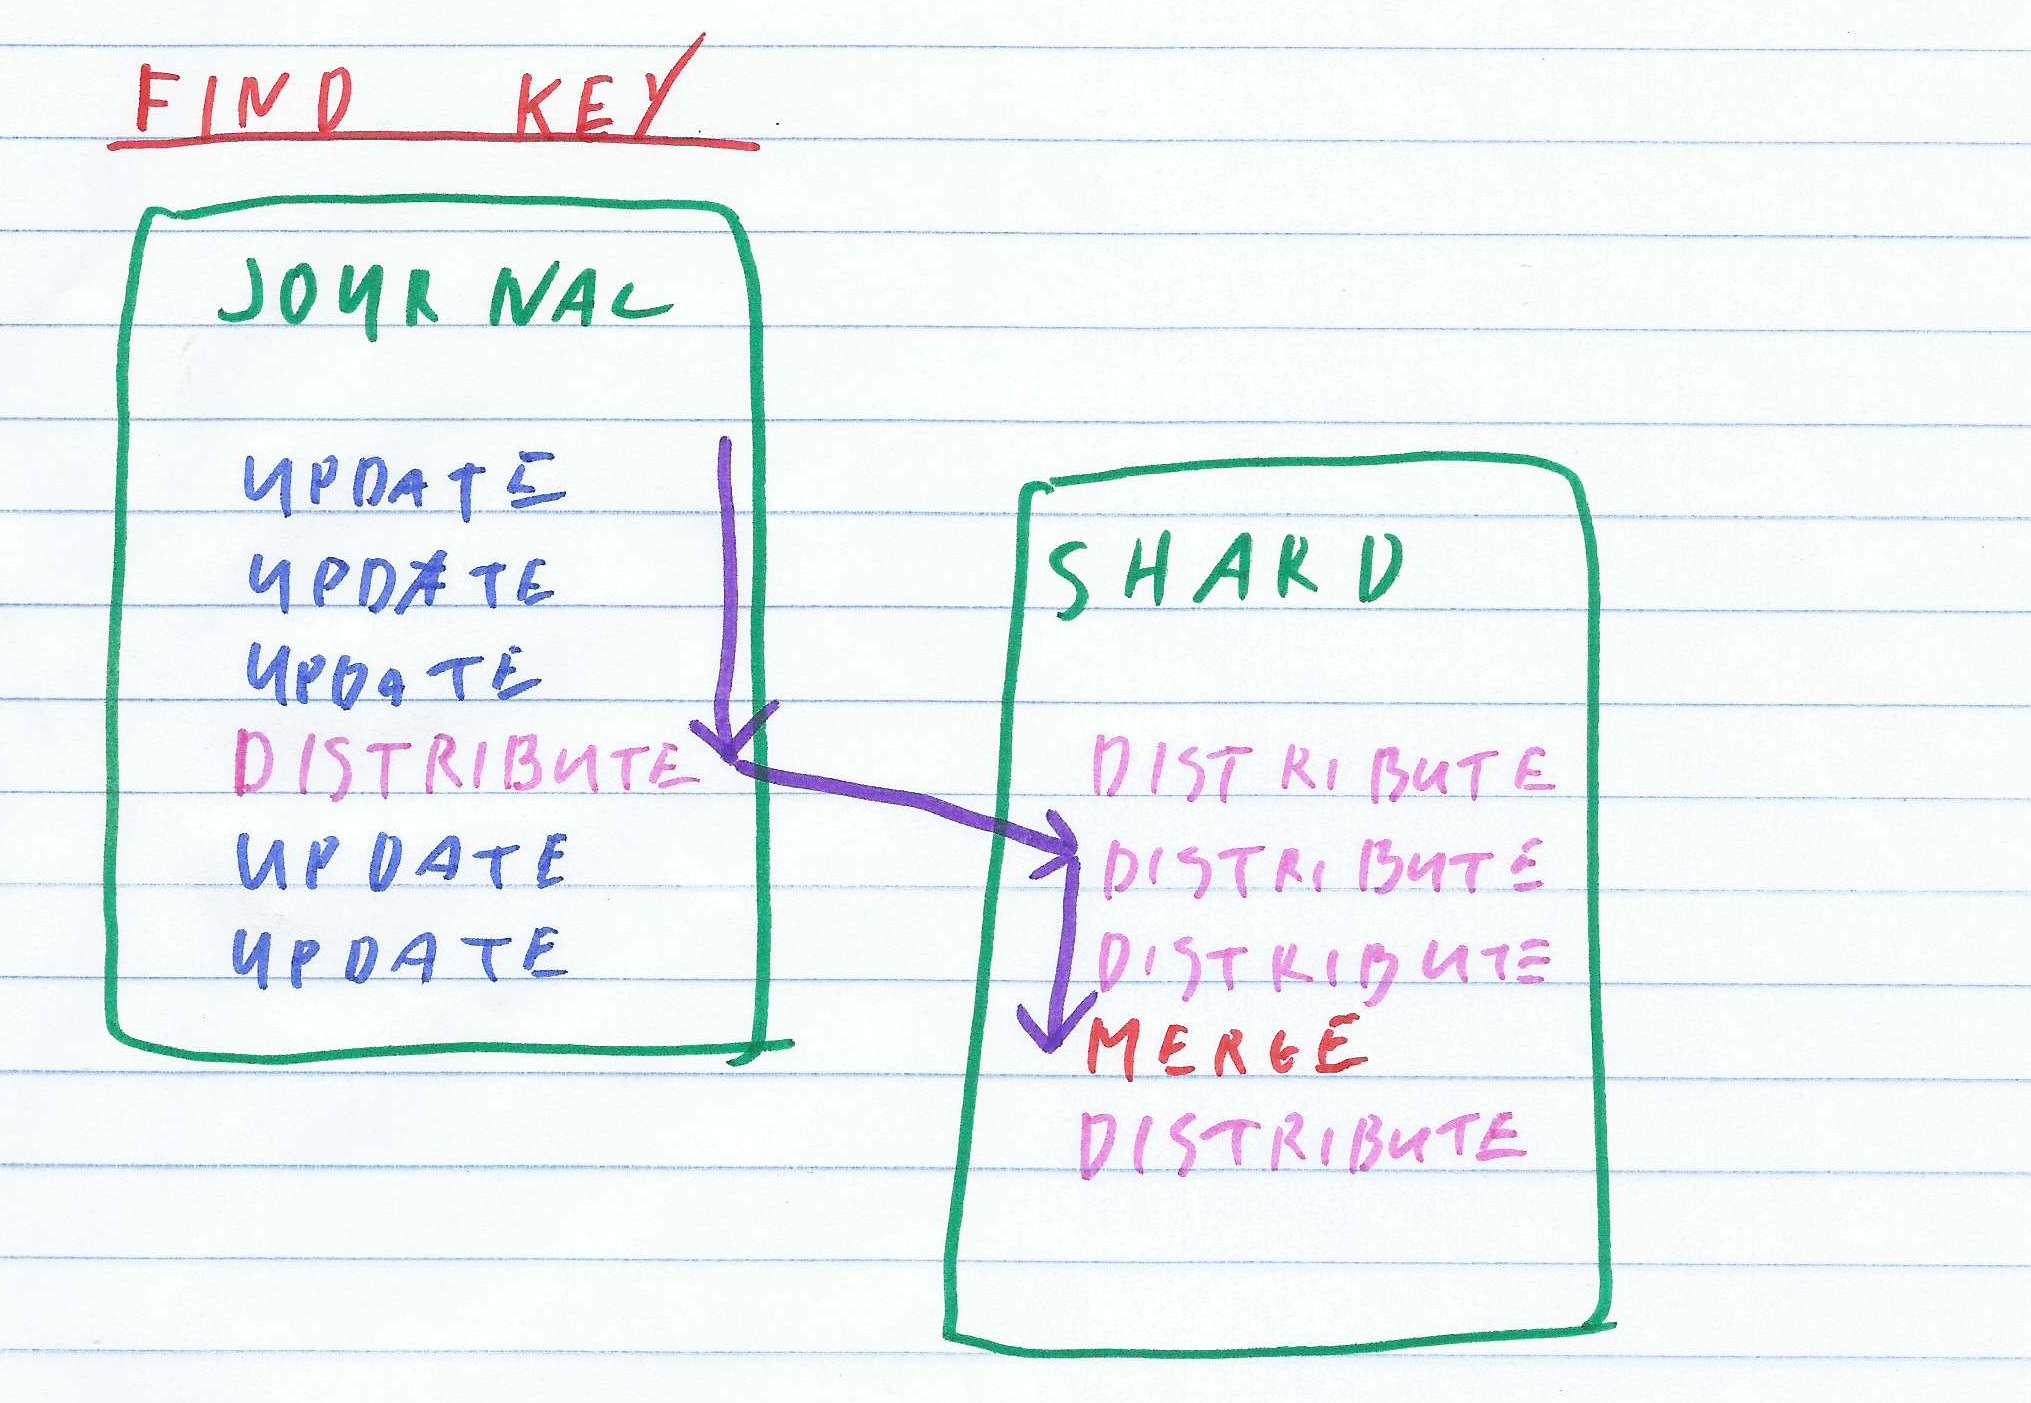 FIND KEY
JOURNAL
UPDATE
UPDATE
UPDATE
DISTRIBUTE
UPDATE
UPDATE
SHARD
DISTRIBUTE
DISTRIBUTE
DISTRIBUTE
MERGE
DISTRIBUTE